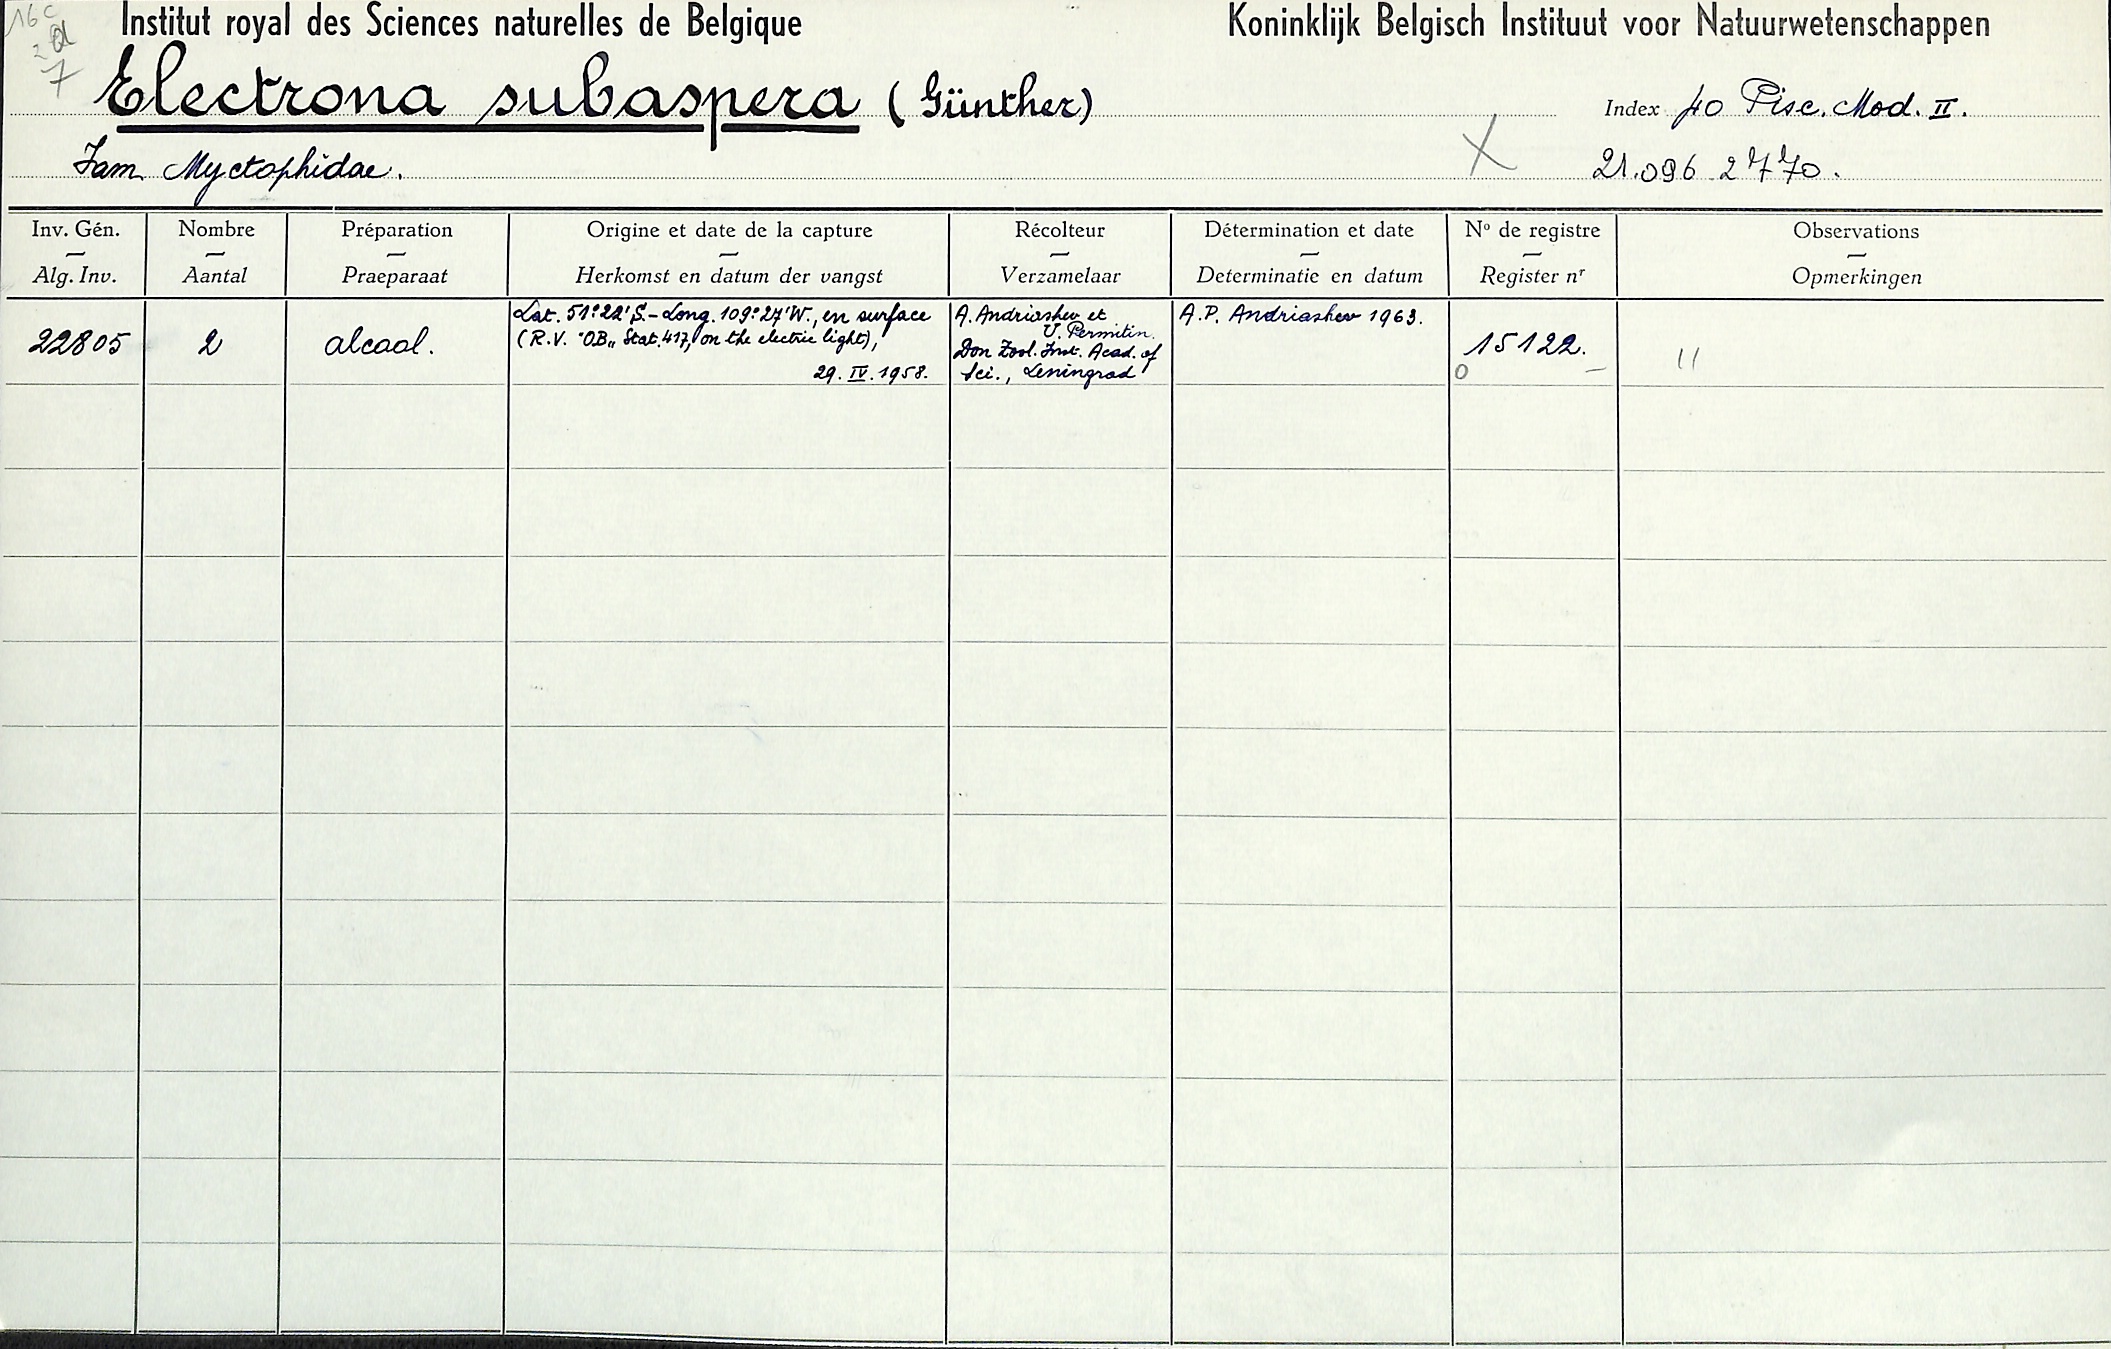 16c
Institut royal des Sciences naturelles de Belgique
Koninklijk Belgisch Instituut voor Natuurwetenschappen
2
7
Electrona subaspera (Günther)
Index 40 Pisc. Mod. II.
Fam. Myctophidae.
X
21.096.2770.
Inv. Gén.
Alg. Inv.
Nombre
Aantal
Préparation
Praeparaat
Origine et date de la capture
Herkomst en datum der vangst
Récolteur
Verzamelaar
Détermination et date
Determinatie en datum
No de registre
Register nr
Observations
Opmerkingen
22805
2
alcool.
Lat. 51°22' S. - Long. 109°27' W., en surface
(R.V. "OB„ Stat. 417, on the electric light),
29.IV.1958.
A. Andriashev et
U. Permitin.
Don Zool. Inst. Acad. of
Sci., Leningrad
A.P. Andriashev 1963.
15122.
0 -
11